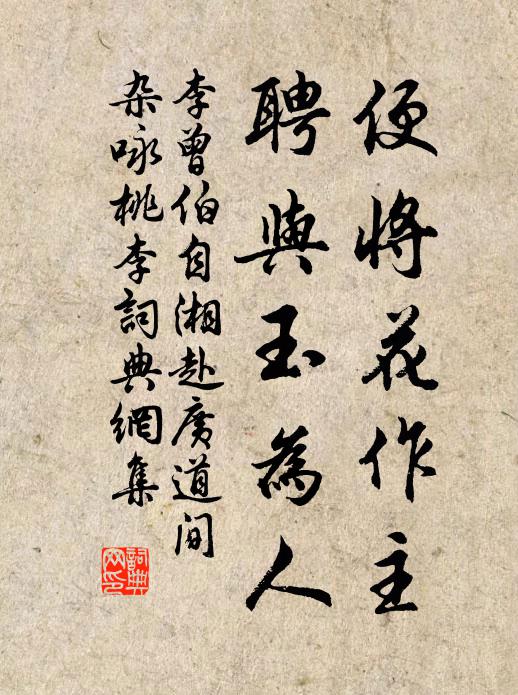 便將花作主
聘與玉為人
李曾伯自湘赴廣道間
杂咏桃李詞典網集
詞典网印